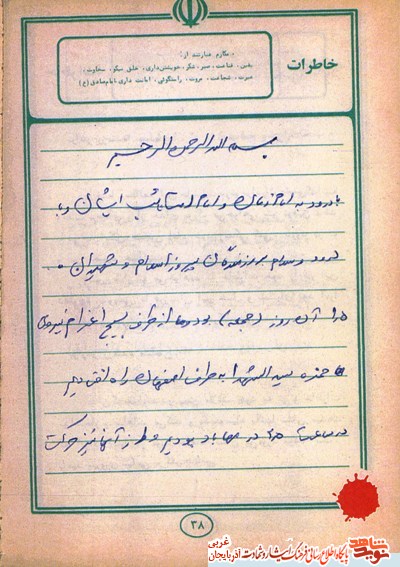 خاطرات
« مکارم عبارتند از:
یقین، قناعت، صبر، شکر، خویشتن‌داری، خلق نیکو، سخاوت،
غیرت، شجاعت، مروت، راستگوئی، امانت داری.امام‌صادق (ع)
بسم الله الرحمن الرحیم
با درود به امام زمان و امام امت نائب ایشان و با
درود و سلام بر رزمندگان پیروز اسلام و شهیدان
آن روز (جمعه) بود و ما از طرف بسیج اعزام نیروی
حمزه سید الشهدا به طرف اصفهان راه افتادیم
در ساعت در مهاباد بودیم و از آنجا نیز حرکت
۳۸
نوید شاهد
پایگاه اطلاع رسانی فرهنگ ایثار و شهادت آذربایجان غربی